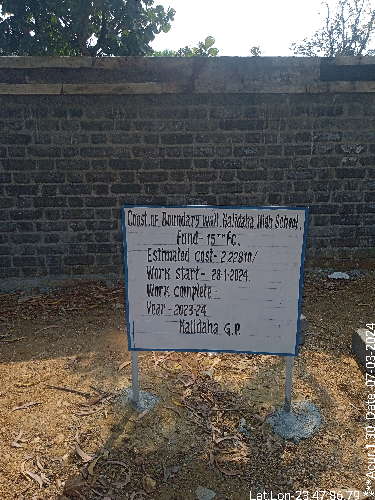 Const. of Boundary wall, Kalidaha High School.
Fund- 15TH FC.
Estimated cost- 2,22810/
Work start- 28-1-2024.
Work complete-
Year - 2023-24.
Kalidaha G.P.
Date 07-03-2024
Lat Lon-23.47,86.79